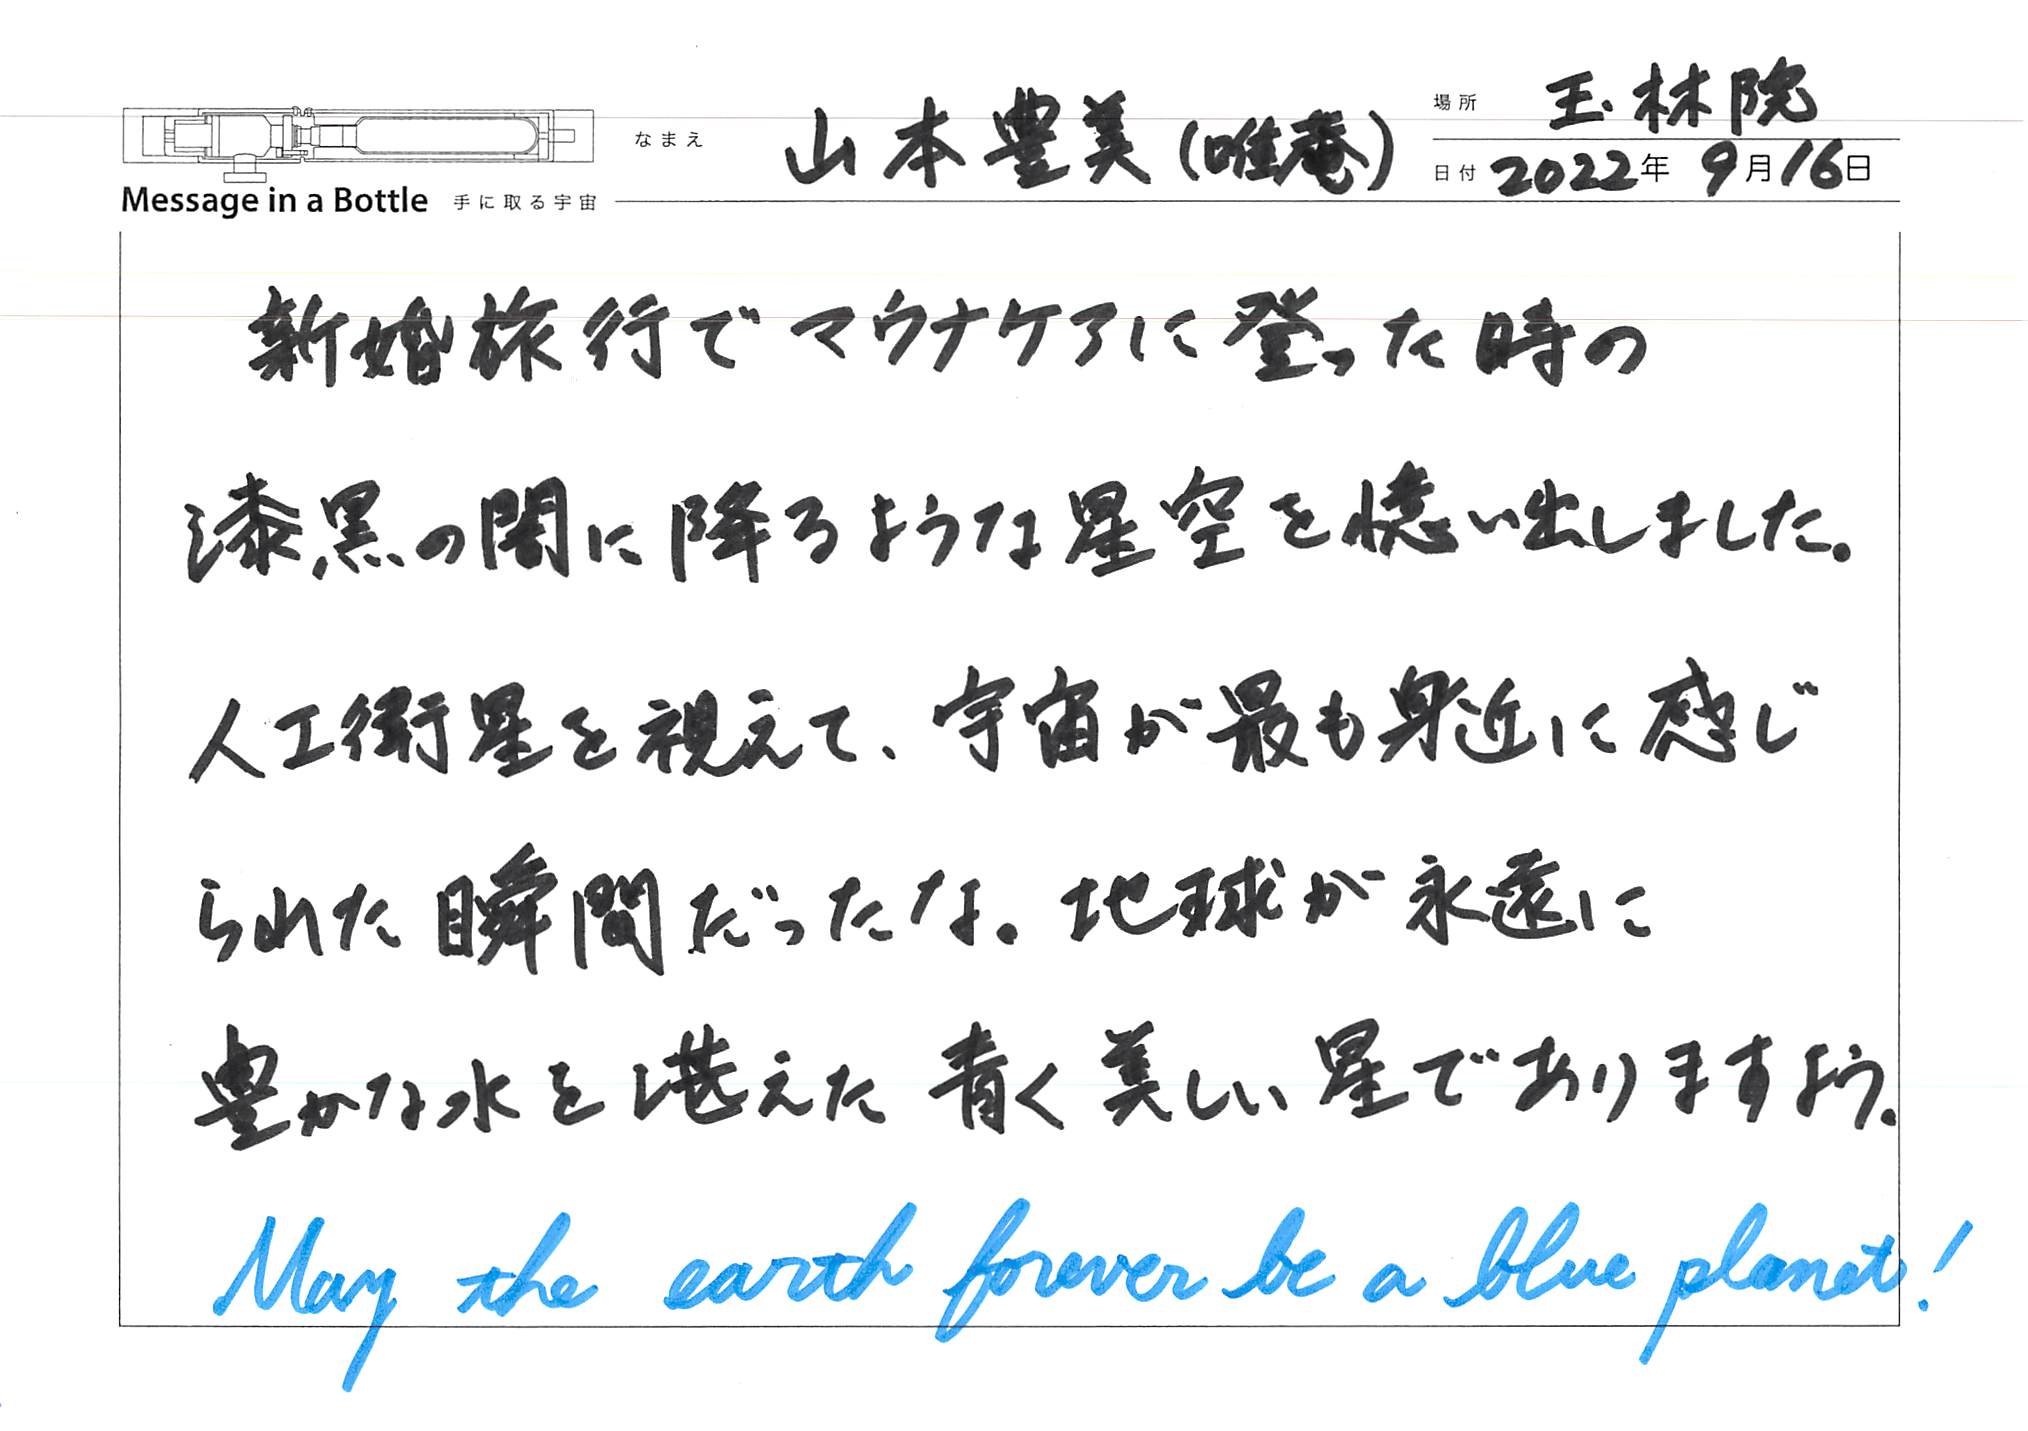 場所 玉林院
なまえ 山本豊美(唯菴)
日付 2022年 9月16日
Message in a Bottle 手に取る宇宙
新婚旅行でマウナケアに登った時の
漆黒の闇に降るような星空を憶い出しました。
人工衛星を視えて、宇宙が最も身近に感じ
られた瞬間だったな。地球が永遠に
豊かな水を湛えた青く美しい星でありますよう。
May the earth forever be a blue planet!